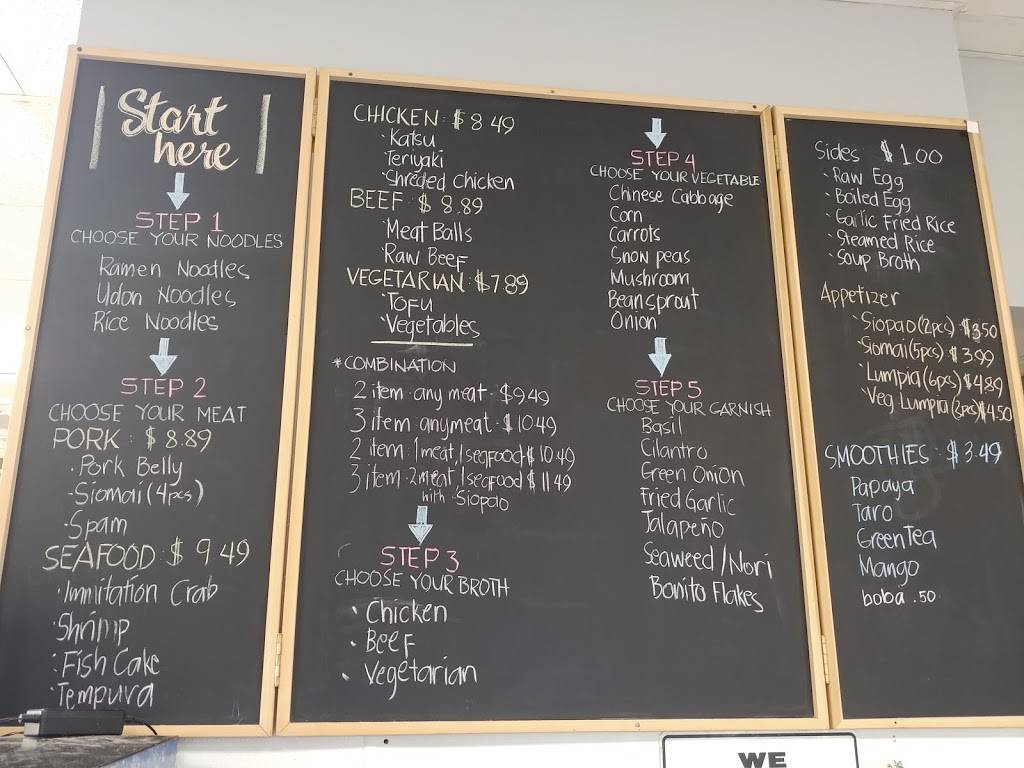 Start
here
STEP 1
CHOOSE YOUR NOODLES
Ramen Noodles
Udon Noodles
Rice Noodles
STEP 2
CHOOSE YOUR MEAT
PORK : $ 8.89
· Pork Belly
· Siomai (4pcs)
· Spam
SEAFOOD : $ 9.49
· Immitation Crab
· Shrimp
· Fish Cake
· Tempura
CHICKEN : $ 8.49
· Katsu
· Teriyaki
· Shreded Chicken
BEEF : $ 8.89
· Meat Balls
· Raw Beef
VEGETARIAN : $7.89
· Tofu
· Vegetables
*COMBINATION
2 item any meat - $9.49
3 item any meat - $10.49
2 item 1meat 1seafood $10.49
3 item - 2meat 1seafood $11.49
with Siopao
STEP 3
CHOOSE YOUR BROTH
· Chicken
· Beef
· Vegetarian
STEP 4
CHOOSE YOUR VEGETABLE
Chinese Cabbage
Corn
Carrots
Snow peas
Mushroom
Beansprout
Onion
STEP 5
CHOOSE YOUR GARNISH
Basil
Cilantro
Green Onion
Fried Garlic
Jalapeño
Seaweed / Nori
Bonito Flakes
Sides $1.00
· Raw Egg
· Boiled Egg
· Garlic Fried Rice
· Steamed Rice
· Soup Broth
Appetizer
· Siopao (2pcs) $3.50
· Siomai (5pcs) $3.99
· Lumpia (6pcs) $4.89
· Veg Lumpia (2pcs) $4.50
SMOOTHIES : $3.49
Papaya
Taro
Green Tea
Mango
boba .50
WE